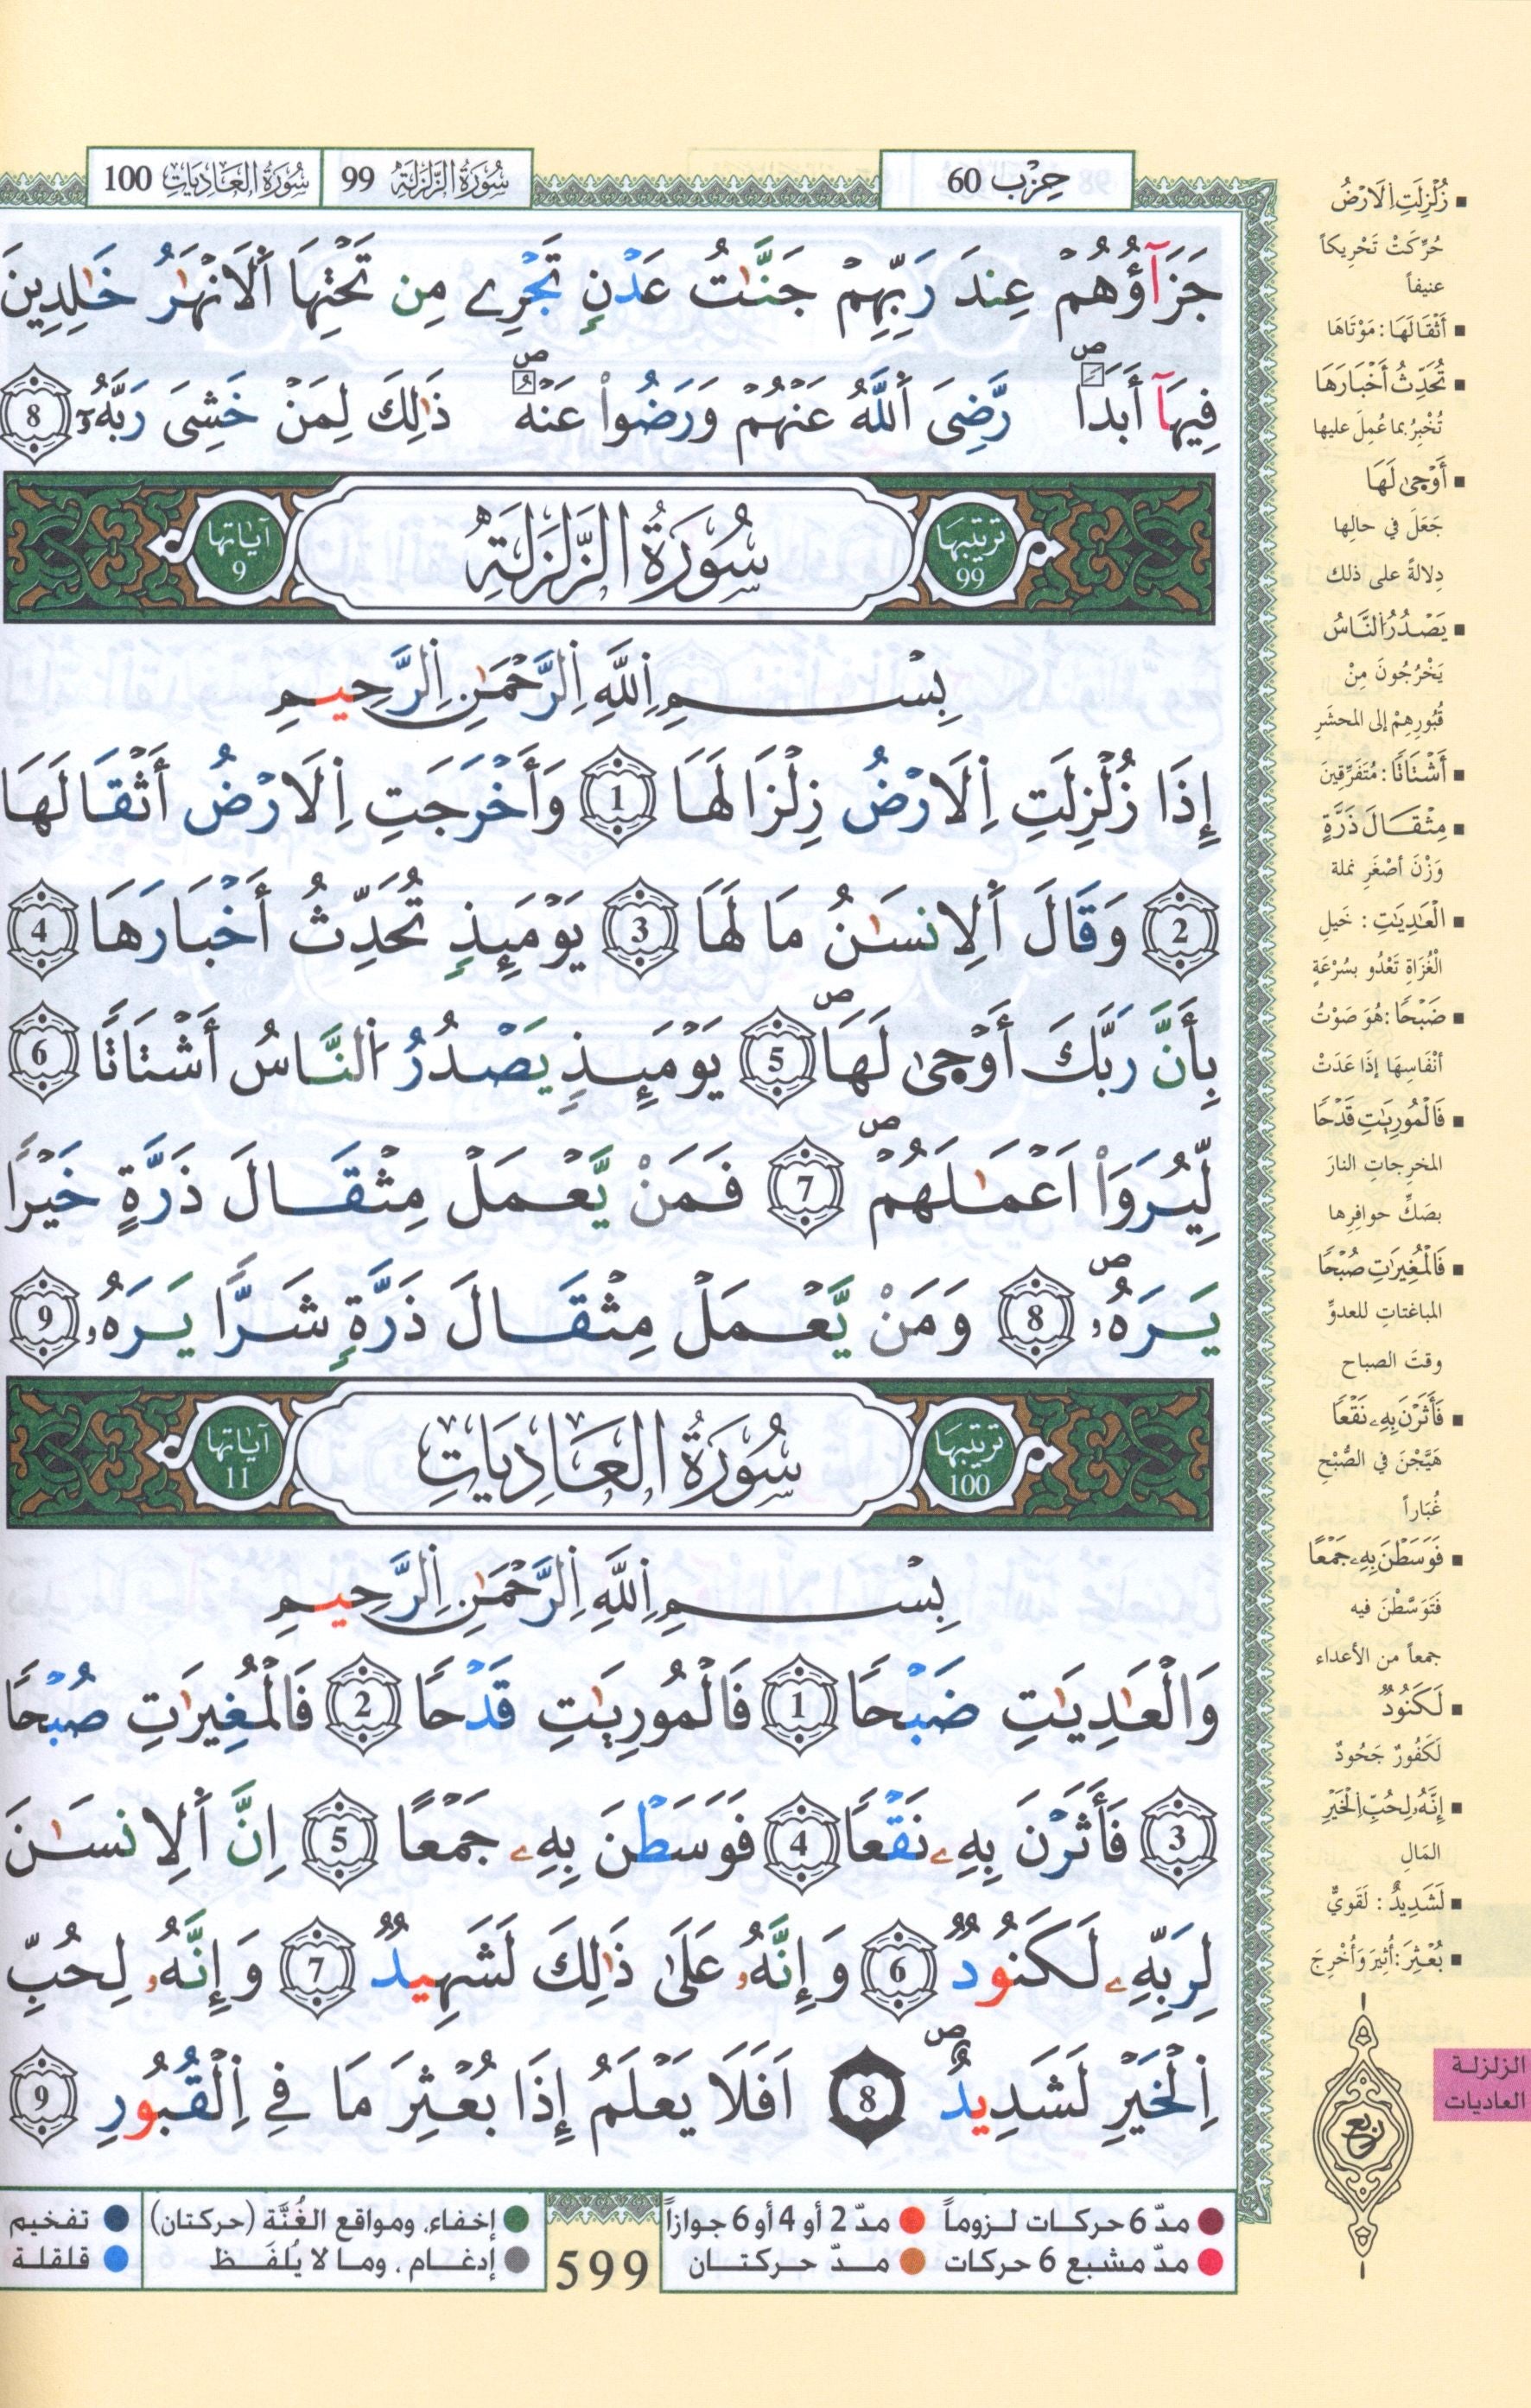 حِزْب 60
سُورَةُ الزَّلْزَلَةِ 99
سُورَةُ العَادِيَاتِ 100
جَزَآؤُهُمْ عِندَ رَبِّهِمْ جَنَّٰتُ عَدْنٖ تَجْرِے مِن تَحْتِهَا اَ۬لَانْهَٰرُ خَٰلِدِينَ
فِيهَآ أَبَداٗ رَّضِيَ اَ۬للَّهُ عَنْهُمْ وَرَضُواْ عَنْهُ ذَٰلِكَ لِمَنْ خَشِيَ رَبَّهُۥٓ 8
تَرتيبها 99
سُورَةُ الزَّلْزَلَةِ
آياتها 9
بِسْمِ اِ۬للَّهِ اِ۬لرَّحْمَٰنِ اِ۬لرَّحِيمِ
إِذَا زُلْزِلَتِ اِ۬لَارْضُ زِلْزَالَهَا 1 وَأَخْرَجَتِ اِ۬لَارْضُ أَثْقَالَهَا
2 وَقَالَ اَ۬لِانسَٰنُ مَا لَهَا 3 يَوْمَئِذٖ تُحَدِّثُ أَخْبَارَهَا 4
بِأَنَّ رَبَّكَ أَوْحَىٰ لَهَا 5 يَوْمَئِذٖ يَصْدُرُ اُ۬لنَّاسُ أَشْتَاتاٗ 6
لِّيُرَوَاْ اَعْمَٰلَهُمْ 7 فَمَنْ يَّعْمَلْ مِثْقَالَ ذَرَّةٍ خَيْراٗ
يَرَهُۥ 8 وَمَنْ يَّعْمَلْ مِثْقَالَ ذَرَّةٖ شَرّاٗ يَرَهُۥ 9
تَرتيبها 100
سُورَةُ العَادِيَاتِ
آياتها 11
بِسْمِ اِ۬للَّهِ اِ۬لرَّحْمَٰنِ اِ۬لرَّحِيمِ
وَالْعَٰدِيَٰتِ ضَبْحاٗ 1 فَالْمُورِيَٰتِ قَدْحاٗ 2 فَالْمُغِيرَٰتِ صُبْحاٗ
3 فَأَثَرْنَ بِهِۦ نَقْعاٗ 4 فَوَسَطْنَ بِهِۦ جَمْعاً 5 اِنَّ اَ۬لِانسَٰنَ
لِرَبِّهِۦ لَكَنُودٞ 6 وَإِنَّهُۥ عَلَىٰ ذَٰلِكَ لَشَهِيدٞ 7 وَإِنَّهُۥ لِحُبِّ
اِ۬لْخَيْرِ لَشَدِيدٌ 8 اَفَلَا يَعْلَمُ إِذَا بُعْثِرَ مَا فِے اِ۬لْقُبُورِ 9
زُلْزِلَتِ اِ۬لَارْضُ
حُرِّكَتْ تَحْرِيكاً
عنيفاً
أَثْقَالَهَا: مَوْتَاهَا
تُحَدِّثُ أَخْبَارَهَا
تُخْبِرُ بما عُمِلَ عليها
أَوْحَىٰ لَهَا
جَعَلَ في حالِها
دِلالةً على ذلك
يَصْدُرُ اُ۬لنَّاسُ
يَخْرُجُونَ مِنْ
قُبُورِهِمْ إلى المحشَرِ
أَشْتَاتاٗ: مُتَفَرِّقِينَ
مِثْقَالَ ذَرَّةٍ
وَزْنَ أصْغَرِ نملة
الْعَٰدِيَٰتِ: خَيلِ
الْغُزَاةِ تَعْدُو بسُرْعَةٍ
ضَبْحاٗ: هُوَ صَوْتُ
أنْفَاسِهَا إذَا عَدَتْ
فَالْمُورِيَٰتِ قَدْحاٗ
المخرِجاتِ النارَ
بصَكِّ حوافِرِها
فَالْمُغِيرَٰتِ صُبْحاٗ
المباغتاتِ للعدوِّ
وقتَ الصباح
فَأَثَرْنَ بِهِۦ نَقْعاٗ
هَيَّجْنَ في الصُّبْحِ
غُبَاراً
فَوَسَطْنَ بِهِۦ جَمْعاً
فَتَوَسَّطْنَ فيه
جمعاً من الأعداء
لَكَنُودٞ
لَكَفُورٌ جَحُودٌ
إِنَّهُۥ لِحُبِّ اِ۬لْخَيْرِ
المَالِ
لَشَدِيدٌ: لَقَوِيٌّ
بُعْثِرَ: أُثِيرَ وَأُخْرِجَ
الزلزلة
العاديات
ربع
مدّ 6 حركات لزوماً
مدّ 2 أو 4 أو 6 جوازاً
إخفاء، ومواقع الغُنَّة (حركتان)
تفخيم
مدّ مشبع 6 حركات
مدّ حركتان
إدغام، وما لا يُلفَظ
قلقلة
599